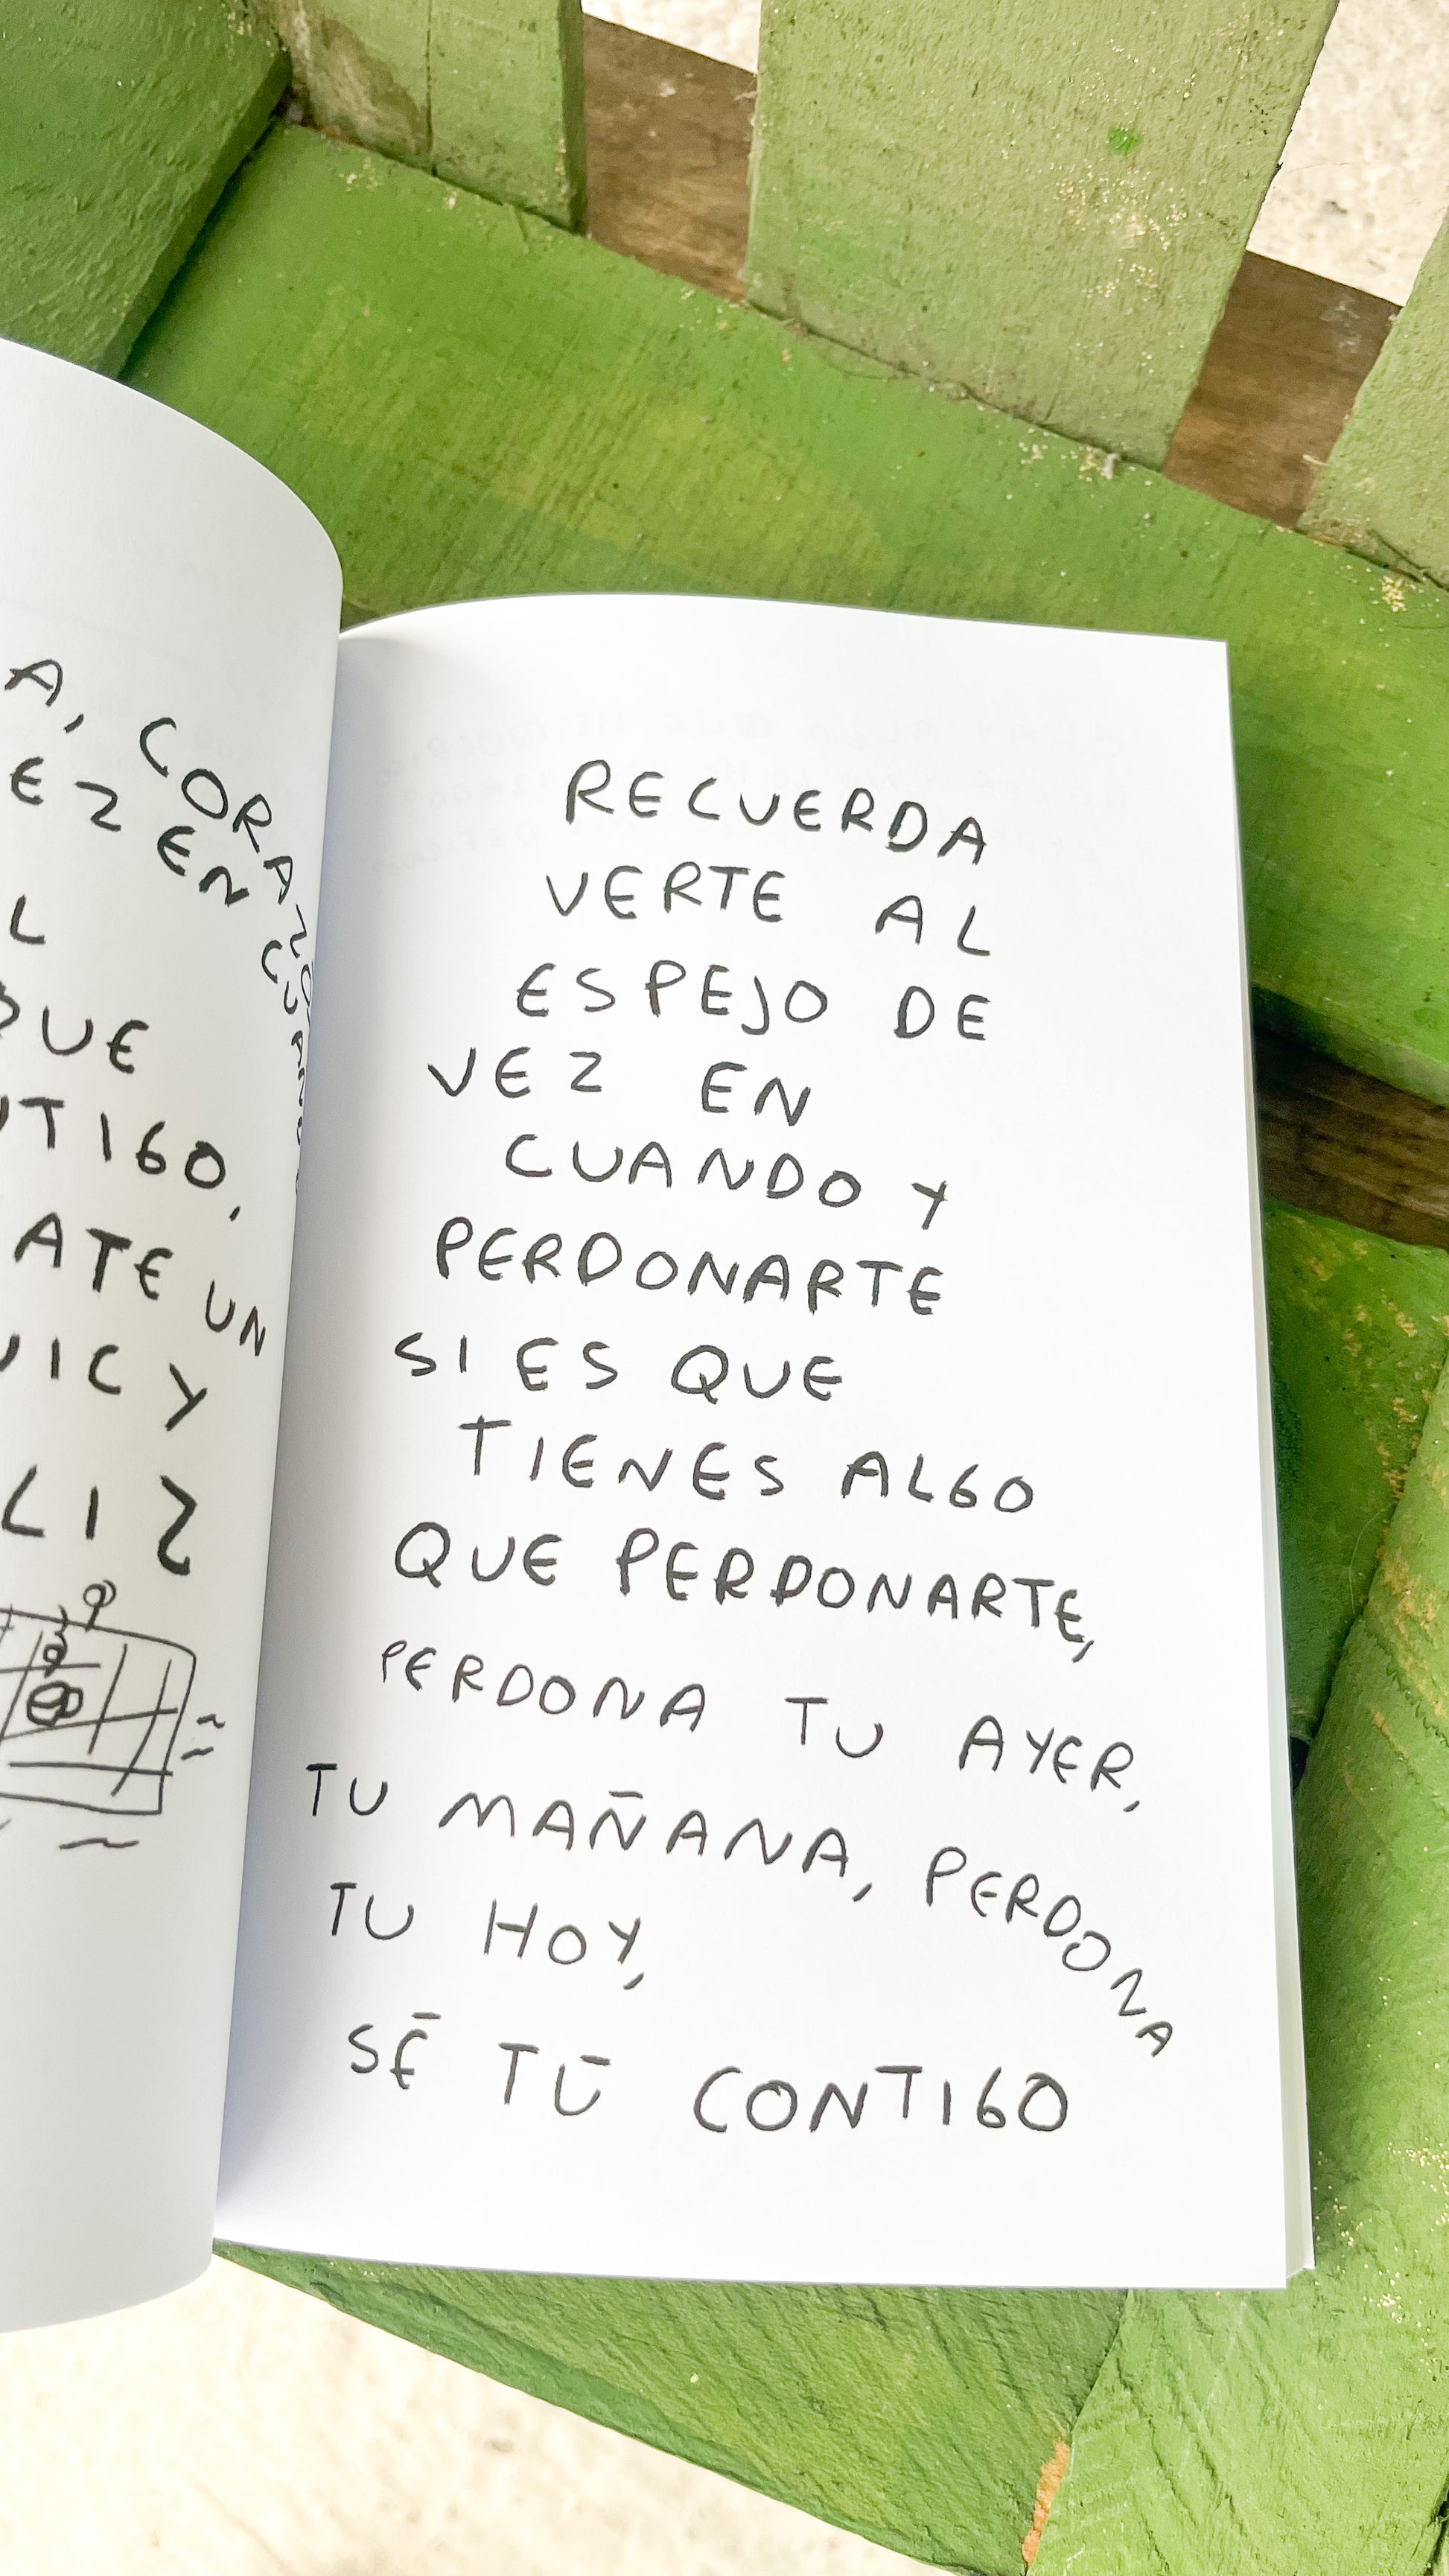 A, CORAZÓN
EZ EN CUANDO
L
QUE
NTIGO,
ATE UN
NIC Y
LIZ
RECUERDA
VERTE AL
ESPEJO DE
VEZ EN
CUANDO Y
PERDONARTE
SI ES QUE
TIENES ALGO
QUE PERDONARTE,
PERDONA TU AYER,
TU MAÑANA, PERDONA
TU HOY,
SÉ TÚ CONTIGO